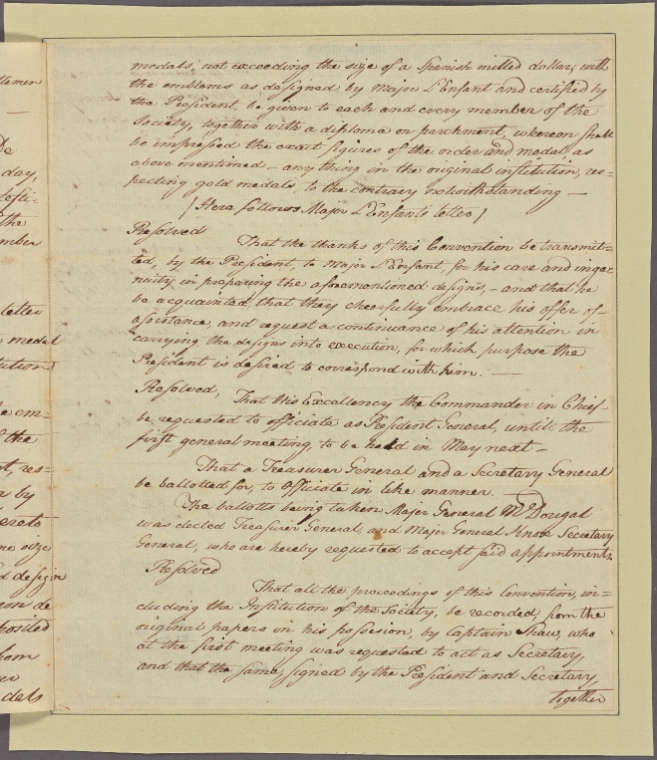 medals, not exceeding the size of a Spanish milled dollar, with
the emblems as designed by Major L'Enfant and certified by
the President, be given to each and every member of the
Society, together with a diploma on parchment, whereon shall
be impressed the exact figures of the order and medal as
above mentioned – any thing in the original institution, res=
pecting gold medals, to the contrary notwithstanding —
[Here follows Major L'Enfants letter]
Resolved
That the thanks of this Convention be transmit=
ted, by the President, to Major L'Enfant, for his care and inge=
nuity in preparing the aforementioned designs, – and that he
be acquainted that they chearfully embrace his offer of
assistance, and request a continuance of his attention in
carrying the designs into execution, for which purpose the
President is desired to correspond with him. —
Resolved,
That His Excellency the Commander in Chief
be requested to officiate as President General, until the
first general meeting, to be held in May next –
That a Treasurer General and a Secretary General
be ballotted for, to officiate in like manner. —
The ballotts being taken Major General McDougal
was elected Treasurer General, and Major General Knox Secretary
General, who are hereby requested to accept said appointments.
Resolved
That all the proceedings of this Convention, in=
cluding the Institution of the Society, be recorded, from the
original papers in his possesion, by Captain Shaw, who
at the first meeting was requested to act as Secretary,
and that the same, signed by the President and Secretary,
together
day,
the
mber
letter
medal
tution
the
res=
by
size
design
posited
from
dals